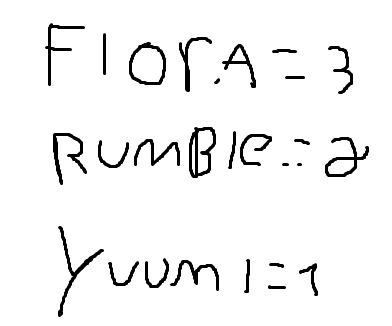 Flor.A = 3
RUMBle = 2
Yuumi = 1